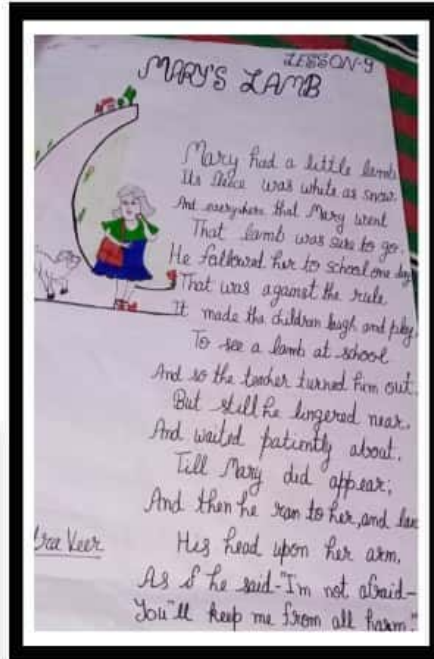 LESSON-9
MARY'S LAMB
Mary had a little lamb
Its fleece was white as snow.
And everywhere that Mary went
That lamb was sure to go.
He followed her to school one day
That was against the rule
It made the children laugh and play,
To see a lamb at school
And so the teacher turned him out.
But still he lingered near.
And waited patiently about.
Till Mary did appear;
And then he ran to her, and
His head upon her arm,
As if he said-"I'm not afraid-
You"ll keep me from all harm."
Veer